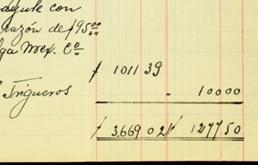 ayute con
razón de $95.00
lga Mex. Co
$ 1011 39
Trigueros " 100 00
$ 3,669 02 $ 1277 50